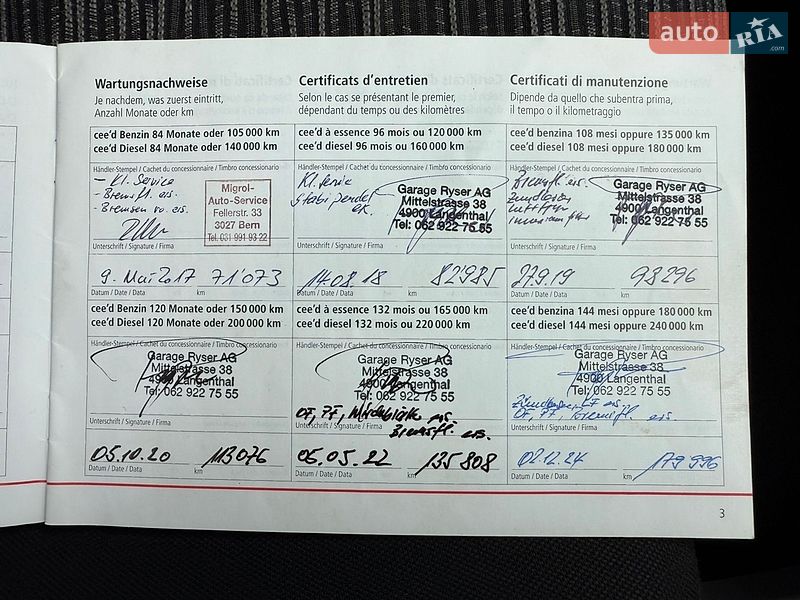 auto RIA .com
Wartungsnachweise
Je nachdem, was zuerst eintritt,
Anzahl Monate oder km
Certificats d'entretien
Selon le cas se présentant le premier,
dépendant du temps ou des kilomètres
Certificati di manutenzione
Dipende da quello che subentra prima,
il tempo o il kilometraggio
cee'd Benzin 84 Monate oder 105 000 km
cee'd Diesel 84 Monate oder 140 000 km
Händler-Stempel / Cachet du concessionnaire / Timbro concessionario
- Kl. Service
- Bremsfl. ers.
- Bremsen vo. ers.
Migrol-
Auto-Service
Fellerstr. 33
3027 Bern
Tel. 031 991 93 22
Unterschrift / Signature / Firma
9. Mai 2017 71'073
Datum / Date / Data km
cee'd à essence 96 mois ou 120 000 km
cee'd diesel 96 mois ou 160 000 km
Händler-Stempel / Cachet du concessionnaire / Timbro concessionario
Kl. Service
Stabi pendel
Garage Ryser AG
Mittelstrasse 38
4900 Langenthal
Tel: 062 922 75 55
Unterschrift / Signature / Firma
14.08.18 82'985
Datum / Date / Data km
cee'd benzina 108 mesi oppure 135 000 km
cee'd diesel 108 mesi oppure 180 000 km
Händler-Stempel / Cachet du concessionnaire / Timbro concessionario
Bremsfl. ers.
Garage Ryser AG
Mittelstrasse 38
4900 Langenthal
Tel: 062 922 75 55
Unterschrift / Signature / Firma
27.9.19 98296
Datum / Date / Data km
cee'd Benzin 120 Monate oder 150 000 km
cee'd Diesel 120 Monate oder 200 000 km
Händler-Stempel / Cachet du concessionnaire / Timbro concessionario
Garage Ryser AG
Mittelstrasse 38
4900 Langenthal
Tel: 062 922 75 55
Unterschrift / Signature / Firma
05.10.20 113076
Datum / Date / Data km
cee'd à essence 132 mois ou 165 000 km
cee'd diesel 132 mois ou 220 000 km
Händler-Stempel / Cachet du concessionnaire / Timbro concessionario
Garage Ryser AG
Mittelstrasse 38
4900 Langenthal
Tel: 062 922 75 55
ÖF, PF, ers.
Unterschrift / Signature / Firma
Bremsfl. ers.
06.05.22 135808
Datum / Date / Data km
cee'd benzina 144 mesi oppure 180 000 km
cee'd diesel 144 mesi oppure 240 000 km
Händler-Stempel / Cachet du concessionnaire / Timbro concessionario
Garage Ryser AG
Mittelstrasse 38
4900 Langenthal
Tel: 062 922 75 55
ÖF, PF, Bremsfl. ers.
Unterschrift / Signature / Firma
02.12.24 179996
Datum / Date / Data km
3